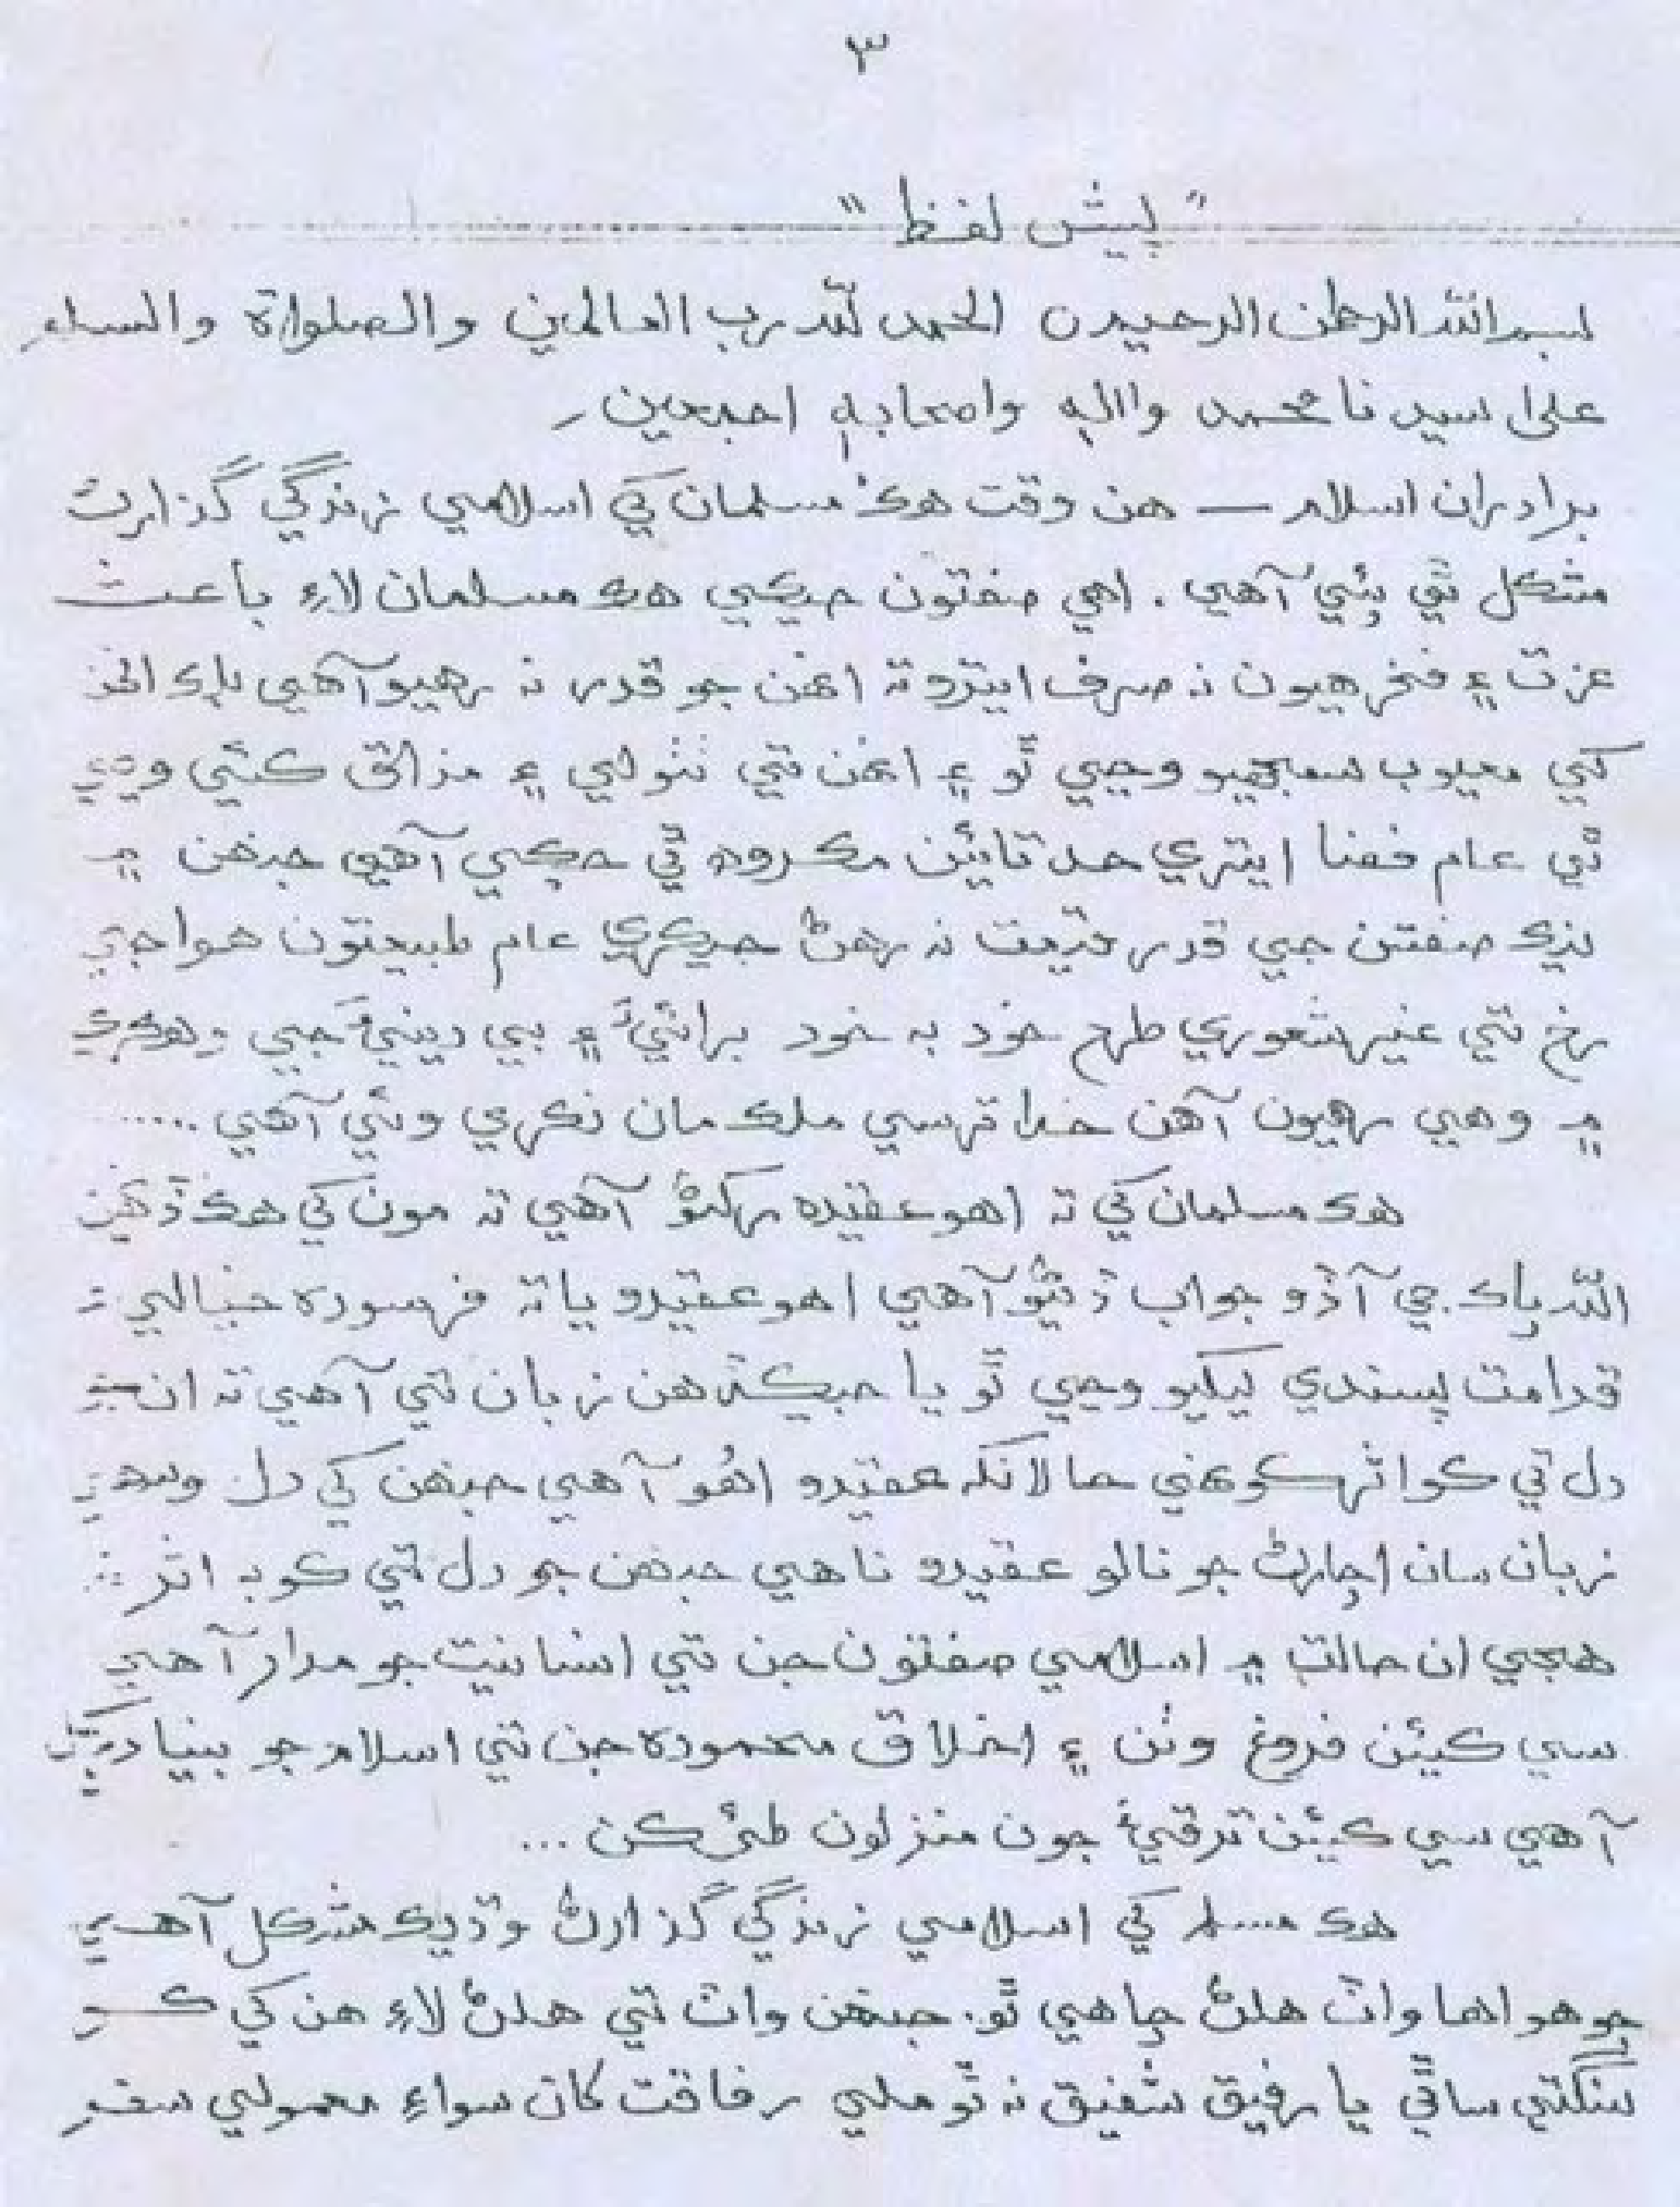 ٣
"پيش لفظ"
بسم الله الرحمٰن الرحيم ن الحمد لله رب العالمين والصلواة والسلام
علىٰ سيدنا محمد واالہٖ واصحابہٖ اجمعين۔
برادران اسلام — هن وقت هڪ مسلمان کي اسلامي زندگي گذارڻ
مشڪل ٿي پئي آهي. اهي صفتون جيڪي هڪ مسلمان لاءِ باعث
عزت ۽ فخر هيون نہ صرف ايترو تہ انهن جو قدر نہ رهيو آهي بلڪ انهن
کي معيوب سمجهيو وڃي ٿو ۽ انهن تي ٺٺولي ۽ مذاق ڪئي وڃي
ٿي عام فضا ايتري حد تائين مڪروه ٿي چڪي آهي جنهن ۾
نيڪ صفتن جي قدر قيمت نہ رهڻ جيڪري عام طبيعتون هوا جي
رخ تي غير شعوري طرح خود بہ خود برائي ۽ بي دينيءَ جي
۾ وهي رهيون آهن خدا ترسي ملڪ مان نڪري وئي آهي .....
هڪ مسلمان کي تہ اهو عقيده رکڻو آهي تہ مون کي هڪ ڏينهن
الله پاڪ جي آڏو جواب ڏيڻو آهي اهو عقيدو يا تہ فرسوده خيالي
قدامت پسندي ليکيو وڃي ٿو يا جيڪڏهن زبان تي آهي تہ ان جو
دل تي ڪو اثر ڪونهي حالانڪه عقيدو اهو آهي جنهن کي دل
زبان مان اچارڻ جو نالو عقيدو ناهي جنهن جو دل تي ڪو بہ اثر نہ
هجي ان حالت ۾ اسلامي صفتون جن تي انسانيت جو مدار آهي
سي ڪيئن فروغ وٺن ۽ اخلاق محموده جن تي اسلام جو بنياد
آهي سي ڪيئن ترقيءَ جون منزلون طئي ڪن ...
هڪ مسلم کي اسلامي زندگي گذارڻ وڌيڪ مشڪل آهي
جو هو اها واٽ هلڻ چاهي ٿو. جنهن واٽ تي هلڻ لاءِ هن کي ڪو
سنگتي ساٿي يا رفيق شفيق نہ ٿو ملي رفاقت کان سواءِ معمولي سفر